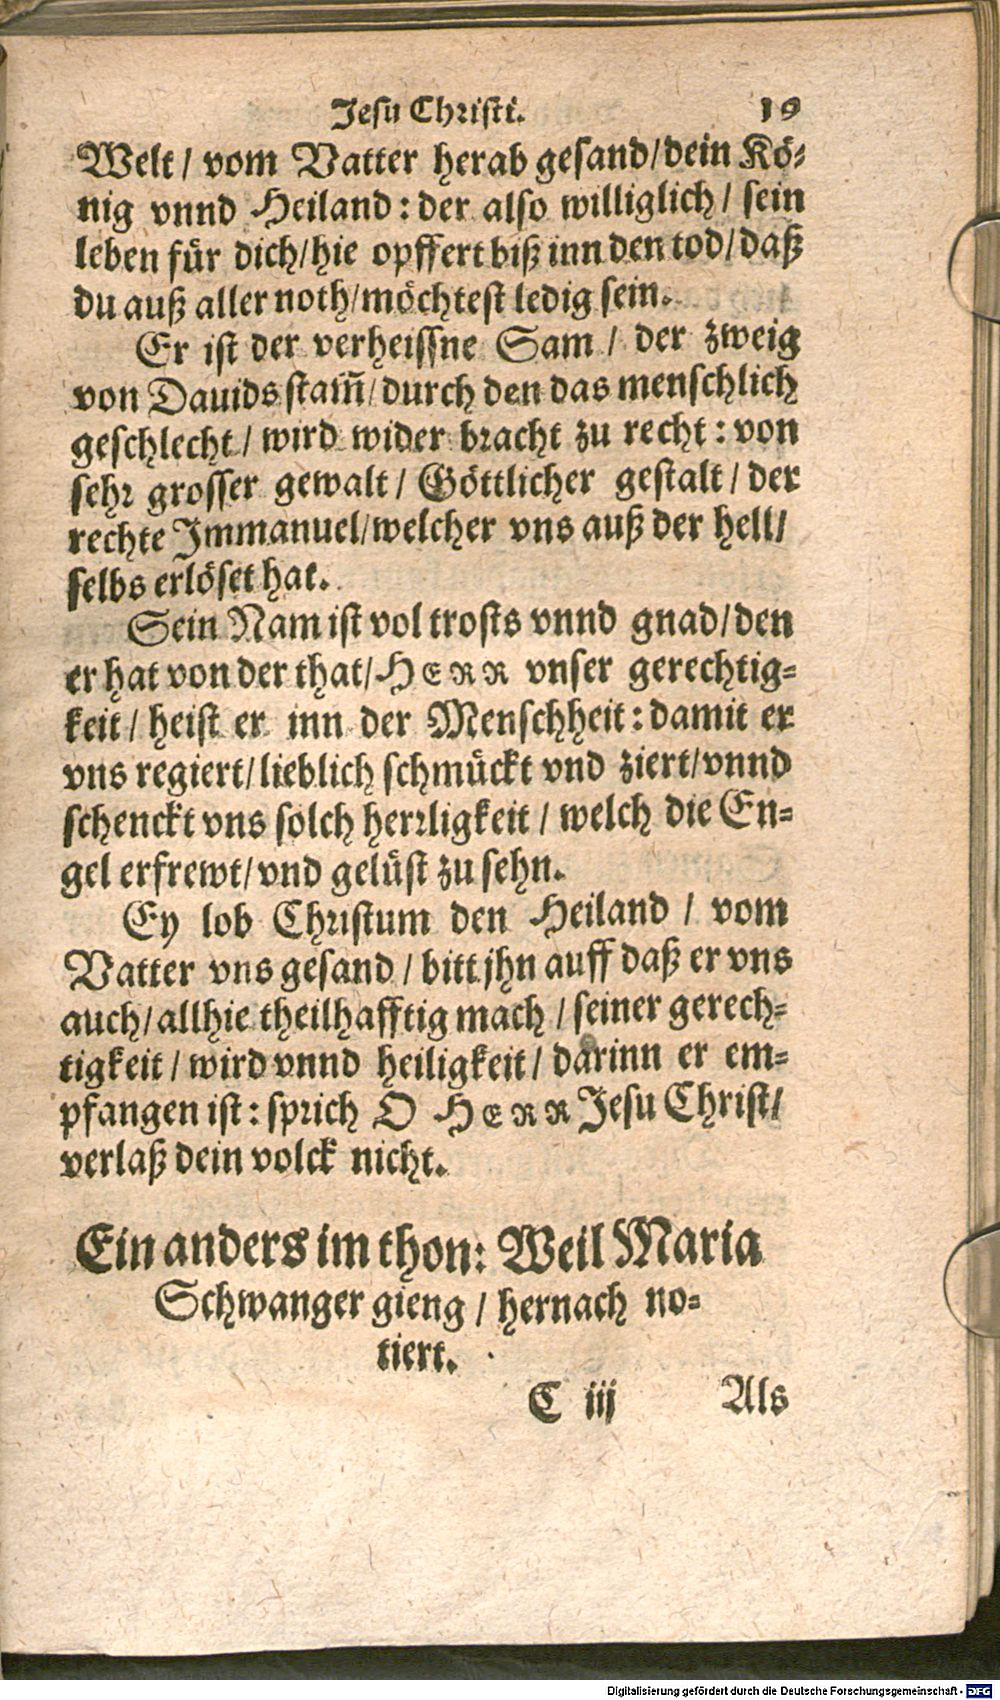 Jesu Christi. 19
Welt / vom Vatter herab gesand/dein Kö-
nig vnnd Heiland : der also williglich / sein
leben für dich/hie opffert biß inn den tod/daß
du auß aller noth/möchtest ledig sein.
Er ist der verheissne Sam / der zweig
von Dauids stam̃/durch den das menschlich
geschlecht / wird wider bracht zu recht : von
sehr grosser gewalt / Göttlicher gestalt / der
rechte Immanuel/welcher vns auß der hell/
selbs erlöset hat.
Sein Nam ist vol trosts vnnd gnad/den
er hat von der that/HERR vnser gerechtig-
keit / heist er inn der Menschheit : damit er
vns regiert/lieblich schmückt vnd ziert/vnnd
schenckt vns solch herrligkeit / welch die En-
gel erfrewt/vnd gelüst zu sehn.
Ey lob Christum den Heiland / vom
Vatter vns gesand / bitt jhn auff daß er vns
auch/allhie theilhafftig mach / seiner gerech-
tigkeit / wird vnnd heiligkeit/ darinn er em-
pfangen ist : sprich O HERR Jesu Christ/
verlaß dein volck nicht.
Ein anders im thon: Weil Maria
Schwanger gieng / hernach no-
tiert.
C iij Als
Digitalisierung gefördert durch die Deutsche Forschungsgemeinschaft - DFG